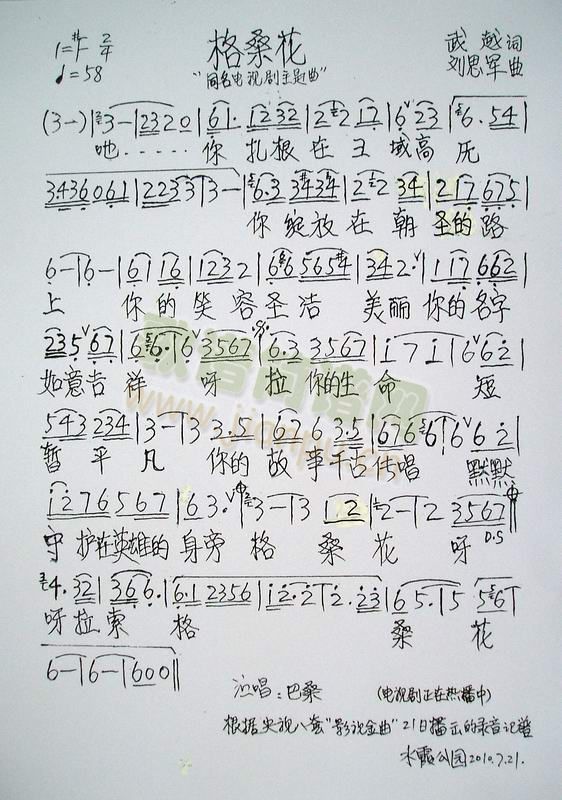 1=#F 2/4
♩=58
格桑花
"同名电视剧主题曲"
武越词
刘思军曲
(3 —) | 3 — | 2 3 2 0 | 6 1· 1 2 3 2 | 2 2 2 1 7 | 6 2 3 | 6· 5 4 |
吔······ 你 扎根在王域高厇
3 4 3 6 0 6 1 | 2 2 3 3 3 | 3 — | 6· 3 3 4 3 4 | 2 2 3 4 | 2 1 7 6 7 5 |
你绽放在朝圣的路
6 — | 6 — | 6 1 1 6 | 1 2 3 2 | 6 6 5 6 5 4 | 3 4 2· | 1 1 7 6 6 2 |
上 你的笑容圣洁 美丽你的名字
2 3 5 6 7 | 6 6· | 6 3 5 6 7 | 6· 3 3 5 6 7 | i 7 i | 6 6 2 |
如意吉祥 呀 拉你的生命 短
5 4 3 2 3 4 | 3 — | 3 3· 5 | 6 7 6 3· 5 | 6 7 6 6 | 6 6 2 |
暂平凡 你的故事千古传唱 默默
i 2 7 6 5 6 7 | 6 3· | 3 — | 3 1 2 | 2 — | 2 3 5 6 7 ||
守护在英雄的身旁格桑花 呀 D.S
4· 3 2 | 3 6 6· | 6· 1 2 3 5 6 | i· 2· 2 | 2· 2 3 | 6 5· | 5 5 6 |
呀拉索 格 桑花
6 — | 6 — | 6 0 0 ||
演唱:巴桑 (电视剧正在热播中)
根据央视八套"影视金曲"21日播出的录音记谱
水霞公园2010.7.21.